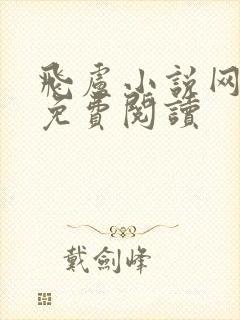 飛盧小説网
免費閱讀
戴劍峰